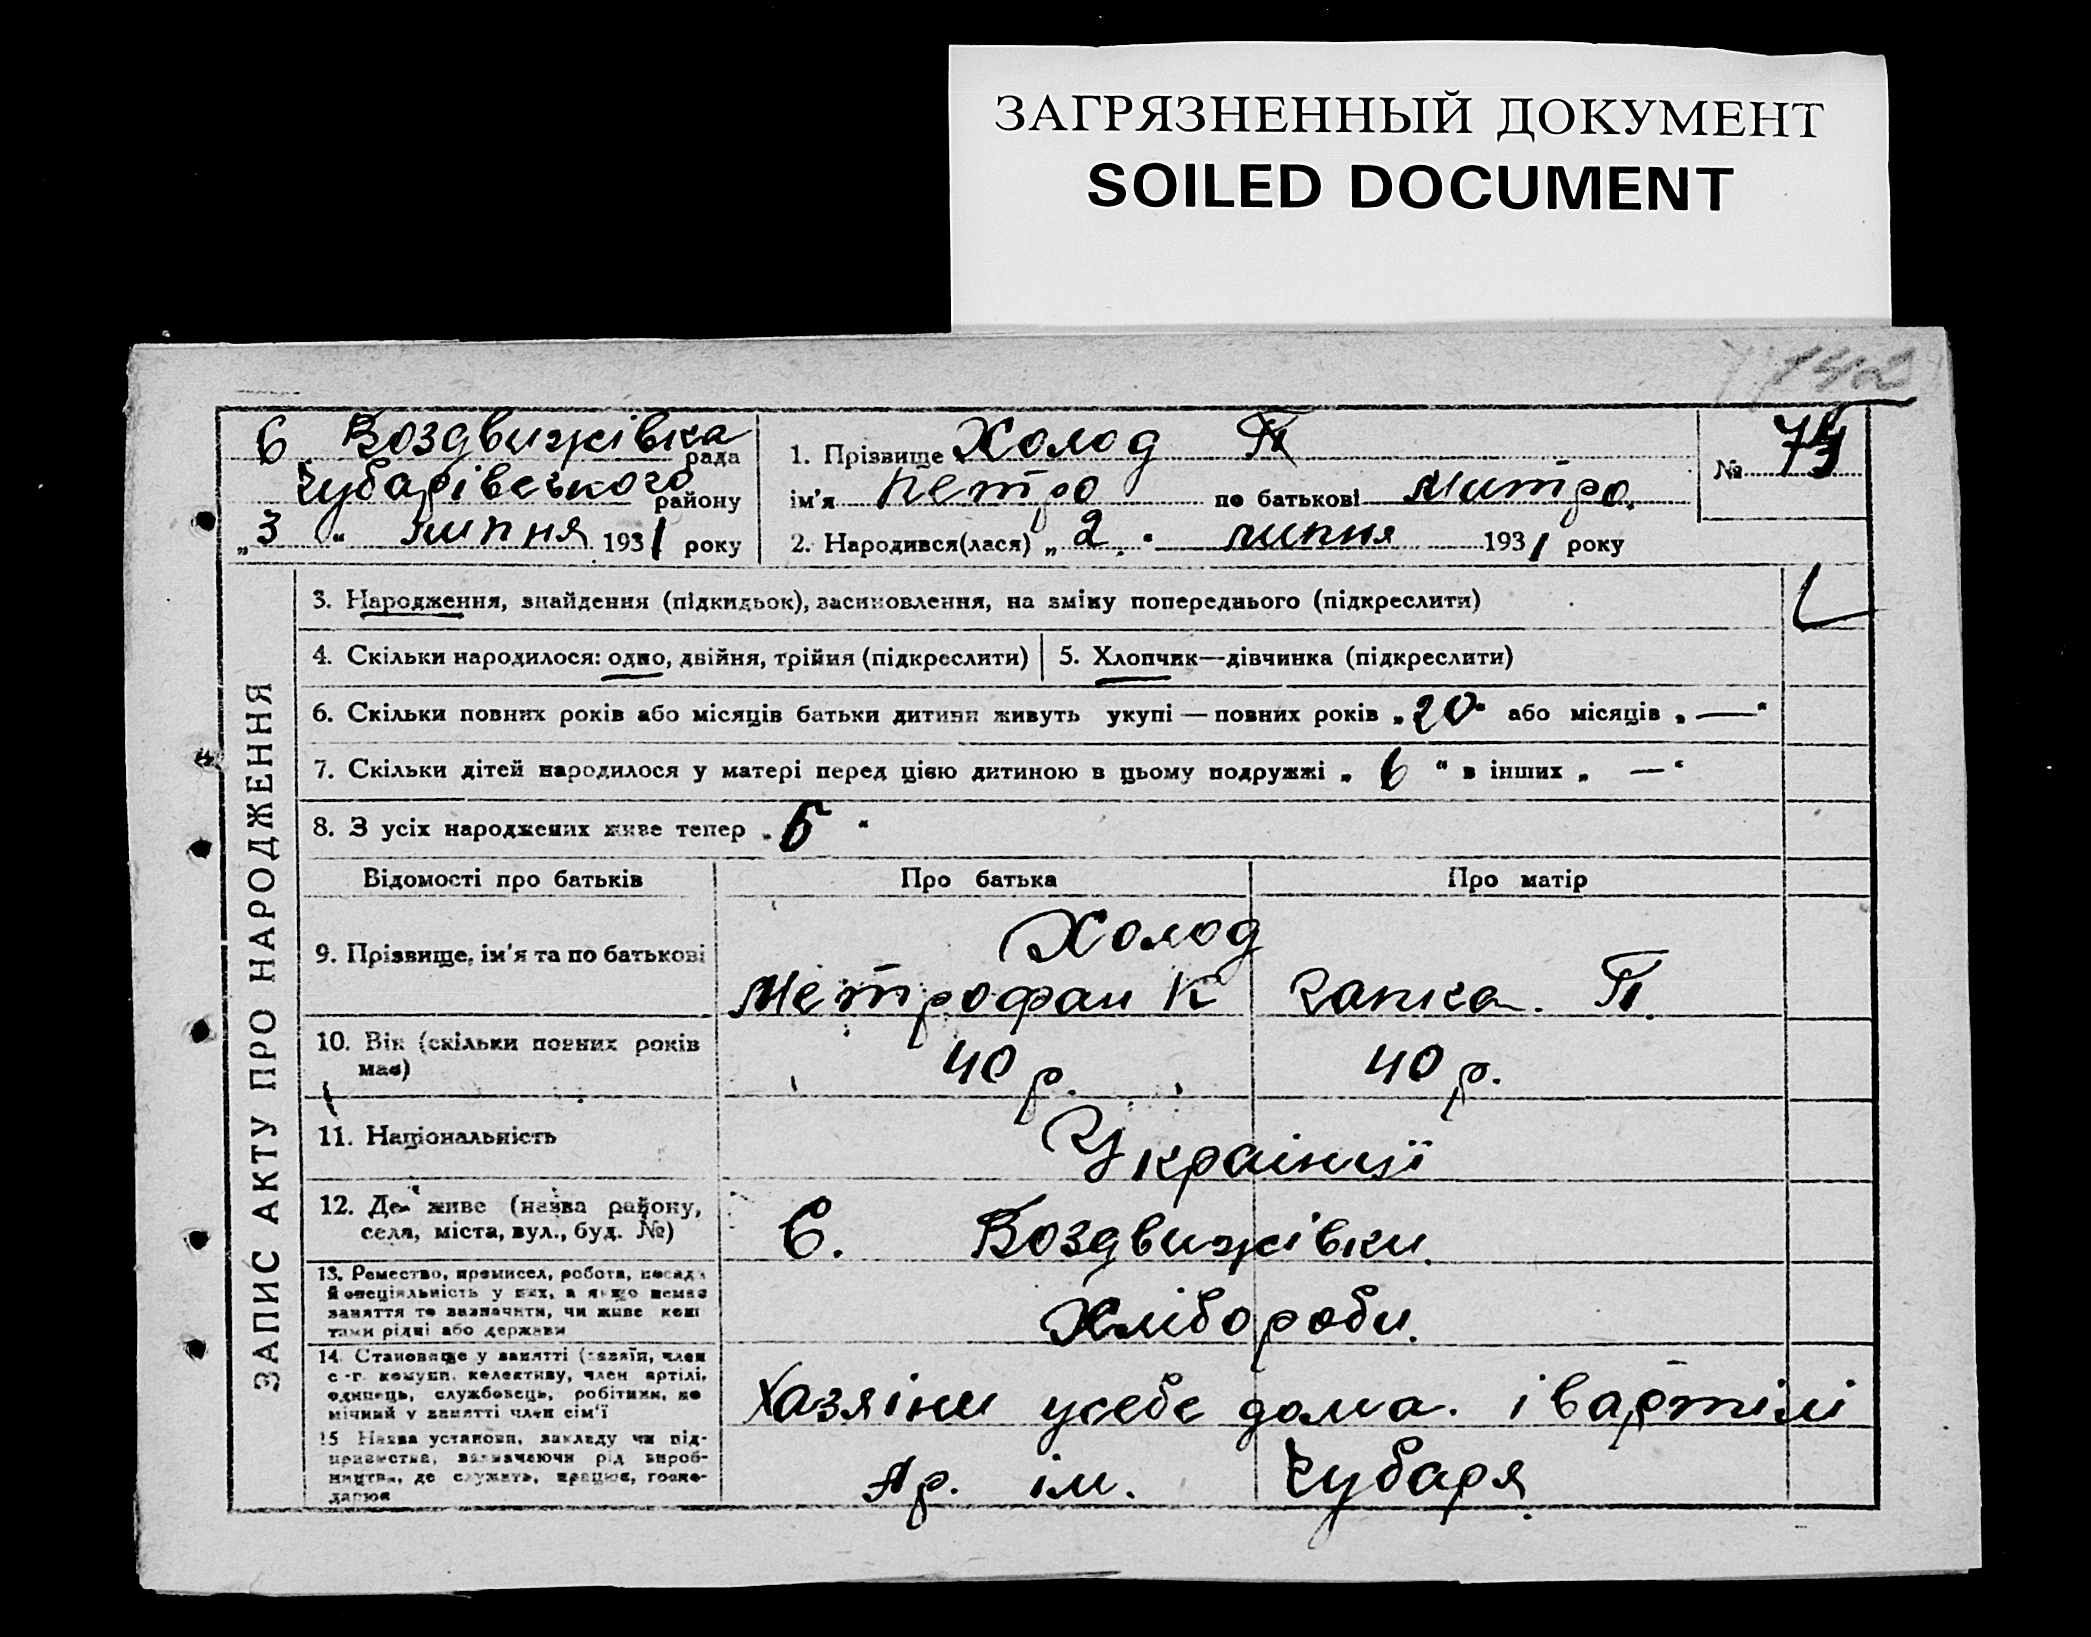 ЗАГРЯЗНЕННЫЙ ДОКУМЕНТ
SOILED DOCUMENT
142
С. Воздвижівка рада
Чубарівського району
„3“ липня 1931 року
1. Прізвище Холод П
ім'я Петро по батькові Митро.
2. Народився(лася) „2“ липня 1931 року
№
ЗАПИС АКТУ ПРО НАРОДЖЕННЯ
3. Народження, знайдення (підкидьок), засиновлення, на зміну попереднього (підкреслити)
4. Скільки народилося: одно, двійня, трійня (підкреслити)
5. Хлопчик—дівчинка (підкреслити)
6. Скільки повних років або місяців батьки дитини живуть укупі — повних років „20“ або місяців „—“
7. Скільки дітей народилося у матері перед цією дитиною в цьому подружжі „6“ в інших „—“
8. З усіх народжених живе тепер „5“
Відомості про батьків
Про батька
Про матір
9. Прізвище, ім'я та по батькові
Холод
Метрофан К
Ганка. П.
10. Вік (скільки повних років має)
40 р.
40 р.
11. Національність
Украінці
12. Де живе (назва району,
села, міста, вул., буд. №)
С. Воздвижівки.
13. Ремество, промисел, робота, посада
й спеціяльність у них, а якщо немає
заняття то зазначити, чи живе кош
тами рідні або держави
Хлібороби.
14. Становище у занятті (хазяїн, член
с.-г. комуни, колективу, член артілі,
одинець, службовець, робітник, по
мічний у занятті член сім'ї
Хазяіни усебе дома. і вартілі
15 Назва установи, закладу чи під-
приємства, зазначаючи рід вироб-
ництва, де служить, працює, госпо-
дарює
Ар. ім. Чубаря